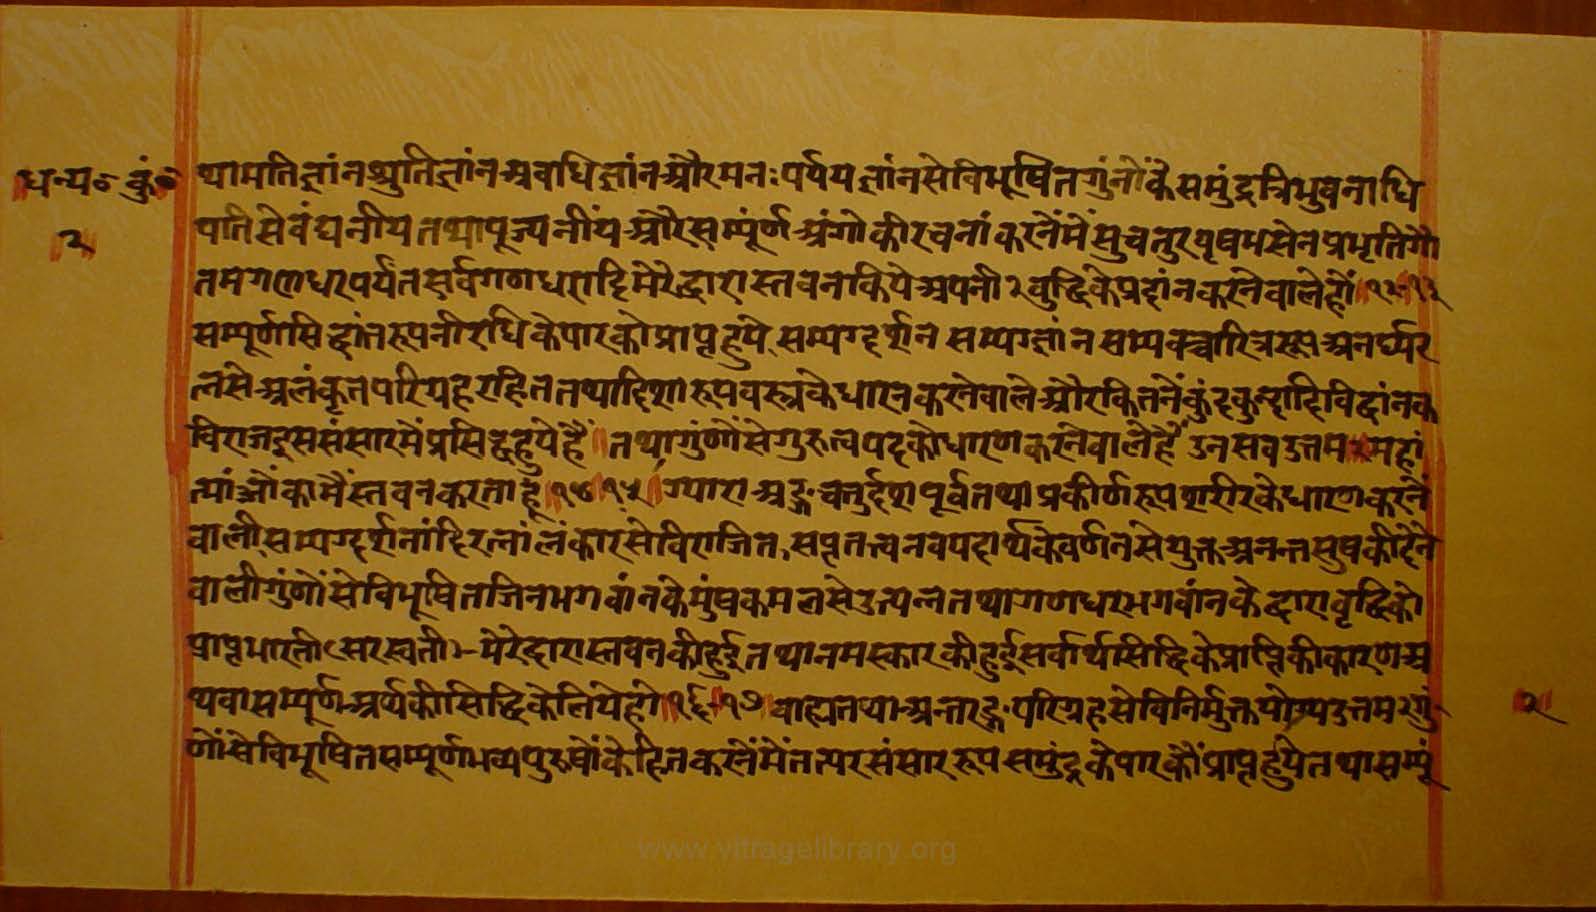 धन्य० कुं०
२
थामतिज्ञांनश्रुतिज्ञांनअवाधिज्ञांनऔरमनःपर्ययज्ञांनसेविभूषितगुंनोंकैसमुंद्रत्रिभुवनाधि
पतिसेवंद्यनीयतथापूज्यनींयऔरसम्पूंर्णअंगोकीरचनांकरनेंमेंसुचतुरवृषभसेनप्रभृतिगौ
तमगणधरपर्यंतसर्वगणधरादिमेरेद्वारास्तवनकियेअपनी२बुद्धिकेप्रदांनकरनेवालेहों॥१२॥१३
सम्पूर्णसिद्धांतरूपनीरधिकेपारकोप्राप्तहुये सम्यग्दर्शन सम्यग्ज्ञांन सम्यक्चारित्ररूप अनर्घ्यर
त्नसेअलंकृतपरिग्रहरहिततथादिशारूपवस्त्रकेधारनकरनेवालेऔरकितनेंकुंदकुन्दादिविद्वांनक
विराजइससंसारमेंप्रसिद्धहुयेहैं॥तथागुंणोंसेगुरुत्वपदकोधारणकरनेवालेहैंउनसबउत्तम२महां
त्मांओंकामैंस्तवनकरताहूं॥१४॥१५॥ग्याराअङ्गचतुर्दशपूर्वतथाप्रकीर्णरूपशरीरकेधारणकरनें
वालीसम्यग्दर्शनांदिरत्नांलंकारसेविराजित,सप्ततत्त्वनवपदार्थकेवर्णनसेयुक्तअनन्तसुषकींदेंने
वालीगुंणोंसेविभूषितजिनभगवांनकेमुंषकमलसेउत्पन्नतथागणधरभगवांनकेद्वारावृद्धिको
प्राप्तभारती(सरस्वती)मेरेद्वारास्तवनकीहुईतथानमस्कारकीहुईसर्वार्थसिद्धिकेप्राप्तिकीकारणअ
थवासम्पूर्णअर्थकीसिद्धिकेलियेहो॥१६॥१७॥वाह्यतथाअन्तरङ्गपरिग्रहसेविनिर्मुक्तयोग्यउत्तम२गुं
णोंसेविभूषितसम्पूर्णभव्यपुरुषोंकेहितकरनेंमेंतत्परसंसाररूपसमुंद्रकेपारकोंप्राप्तहुयेतथासम्पूं
२